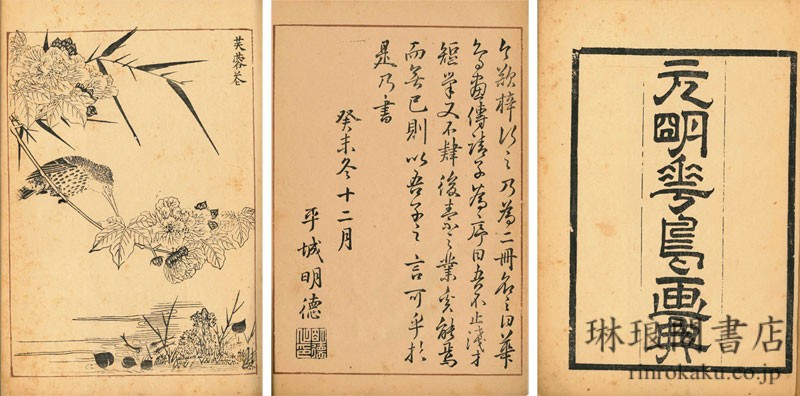 芙蓉巻
今欲梓行之乃為二冊名之曰華
鳥畫傳請予為之序曰吾不止淺才
短筆又不肆後素之業突能焉
而無已則以吾子之言可乎於
是乃書
癸未冬十二月
平城明德
元明華鳥画
琳琅閣書店
rinrokaku.co.jp